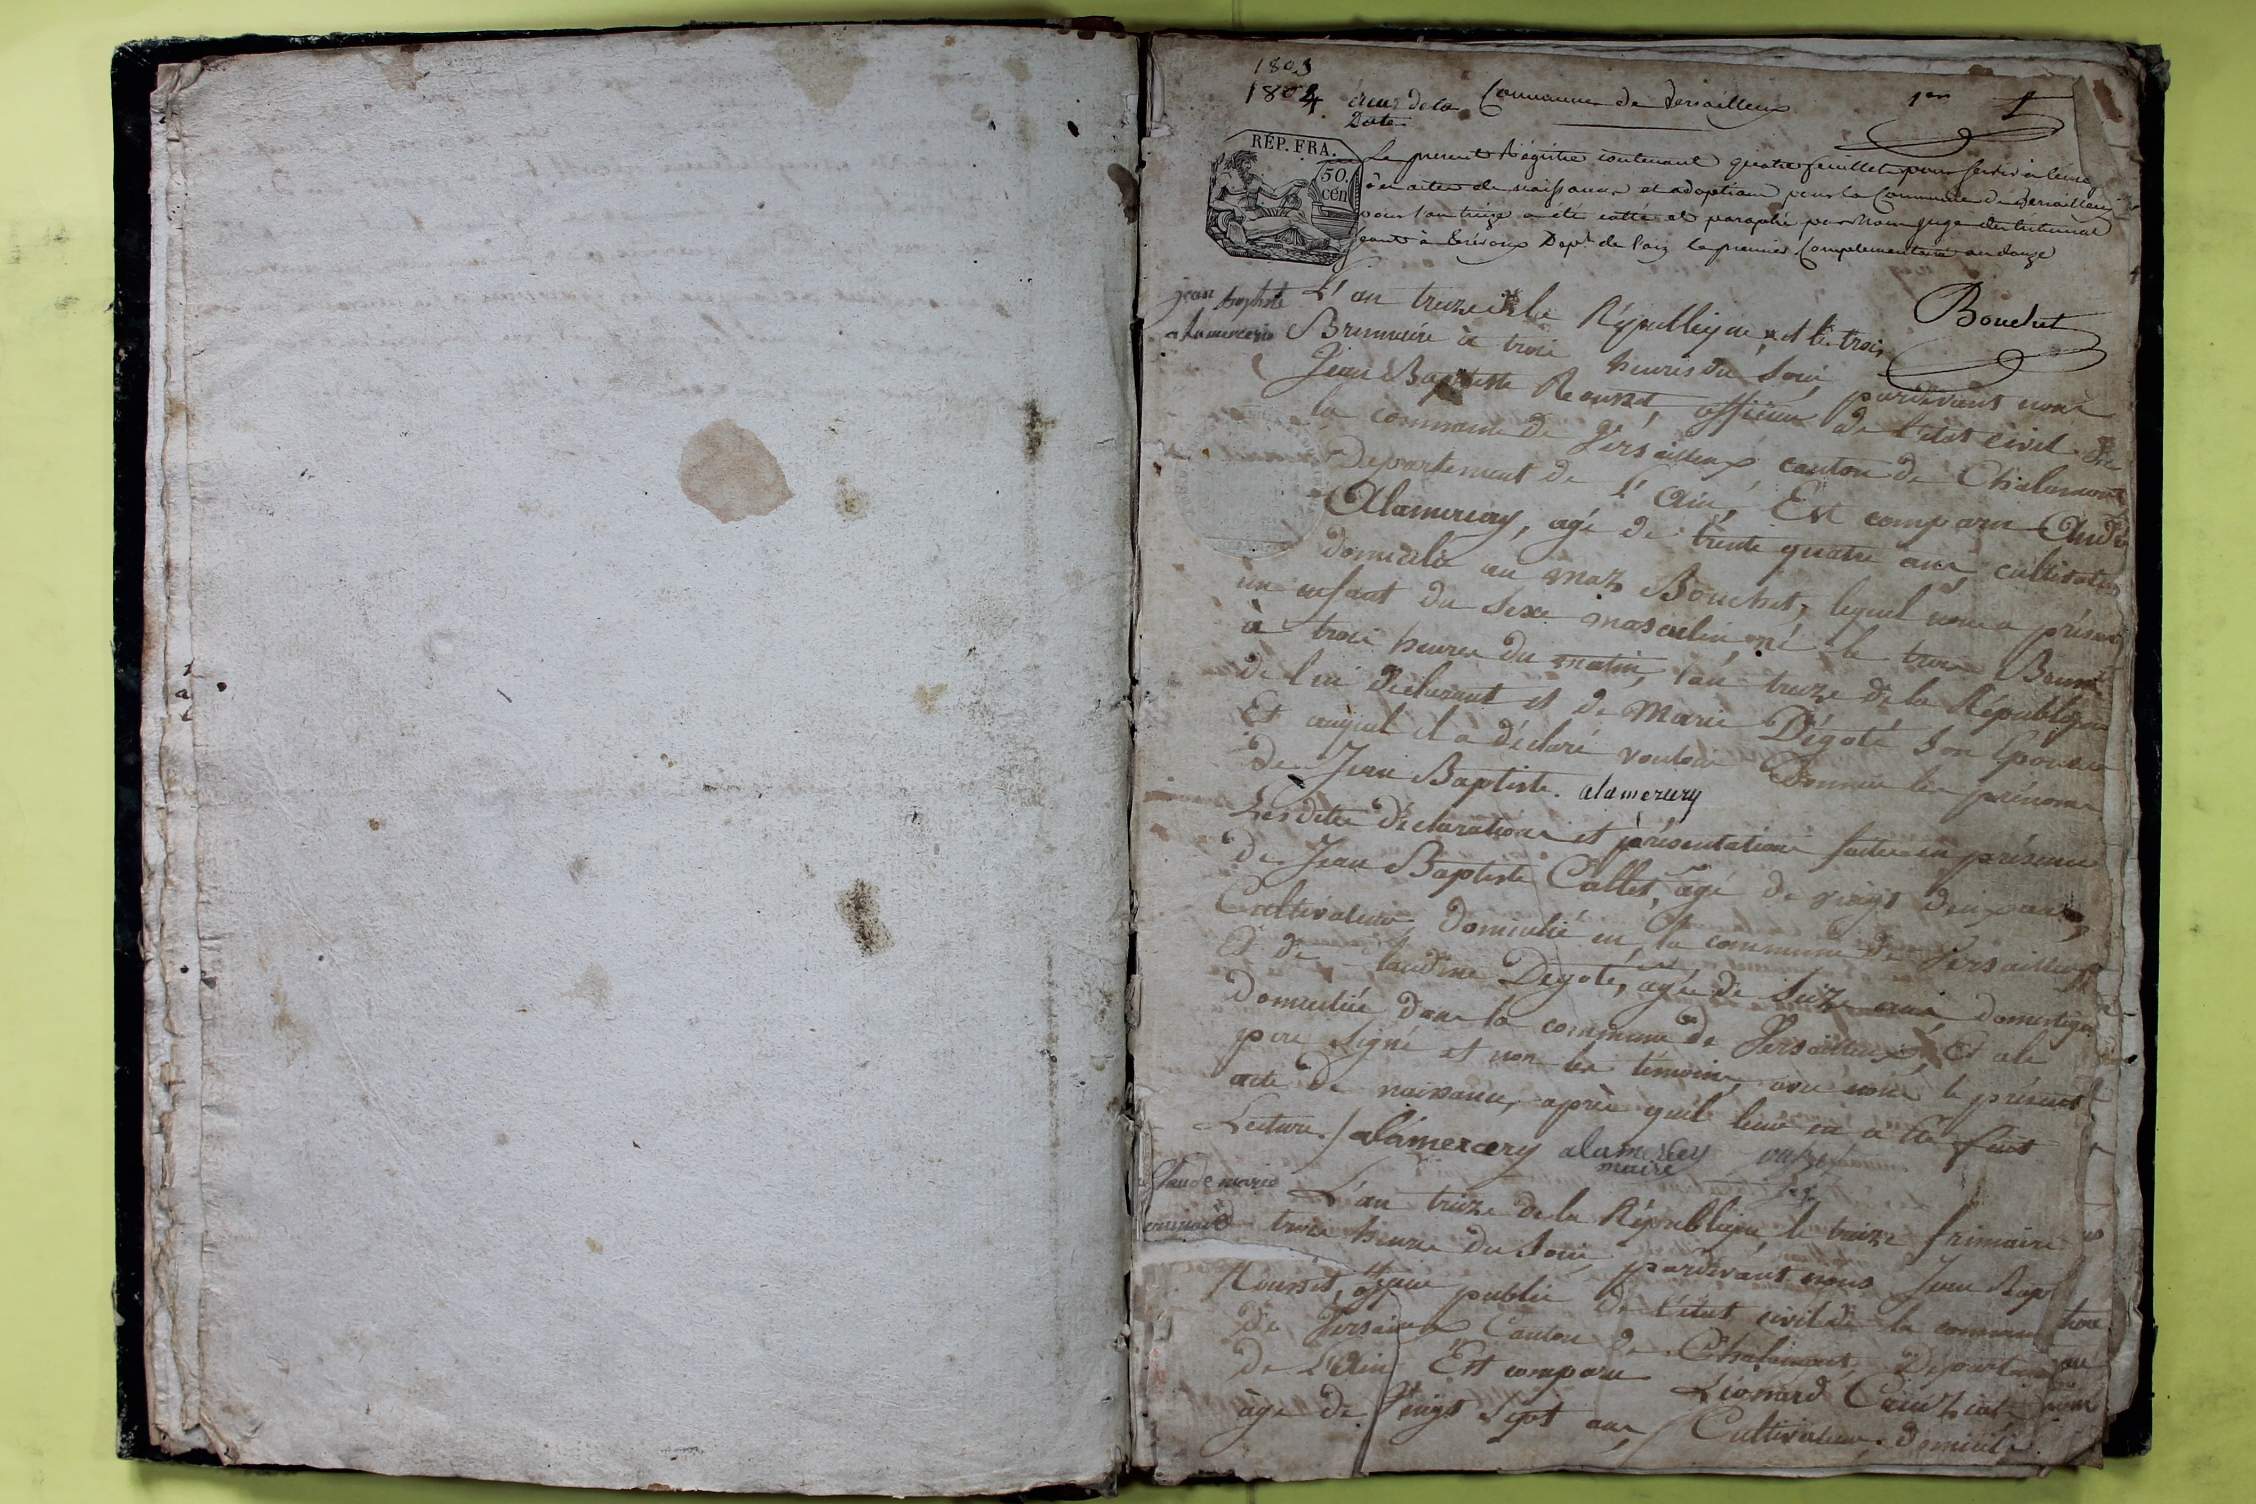 1803
1804 erreur de la Commune de Versailleux 1er 1
Date
RÉP. FRA.
50.
cen
Le present Régistre contenant quatre feuillets pour servir à
des actes de naissances et adoptions pour la Commune de Versailleux
pour l'an treize a été cotté et paraphé par Nous juge du tribunal
séant à Trévoux Dept de l'ain le premier Complementaire an douze
Bouchet
jean baptiste
alamercerie
L'an treize de la République, et le trois
Brumaire à trois heures du Soir, pardevant nous
Jean Baptiste Rousset, officier de l'état civil de
la commune de Versailleux canton de Chalamont
Département de l'Ain, Est comparu André
Alamercery, agé de trente quatre ans, cultivateur
domicilié au maz Bouchet, lequel nous a présenté
un enfant du Sexe masculin, né le trois Brum
à trois heures du matin, l'an treize de la République
de lui Déclarant et de Marie Dégoté Son Epouse
Et auquel il a déclaré vouloir Donner les prénoms
de Jean Baptiste. alamercery
Lesdites Déclaration et présentation faites en présence
de Jean Baptiste Callet, agé de vingt deux ans,
Cultivateur, Domicilié en la commune de Versailleux
Et de Claudine Degoté, agée de Seize ans Domestique
Domiciliée dans la commune de Versailleux, Et a le
pere signé et non les témoins, avec nous le présent
acte de naissance, après qu'il leur en a été fait
Lecture. / alamercery alamercery
maire
Claude marie
L'an treize de la République, le treize frimaire
trois heures du Soir, pardevant nous Jean Bap
Rousset, officier public de l'état civil de la commune
de Versailleux Canton de Chalamont, Départem
de L'Ain Est comparu Léonard
âgé de Vingt Sept ans, Cultivateur, domicilié